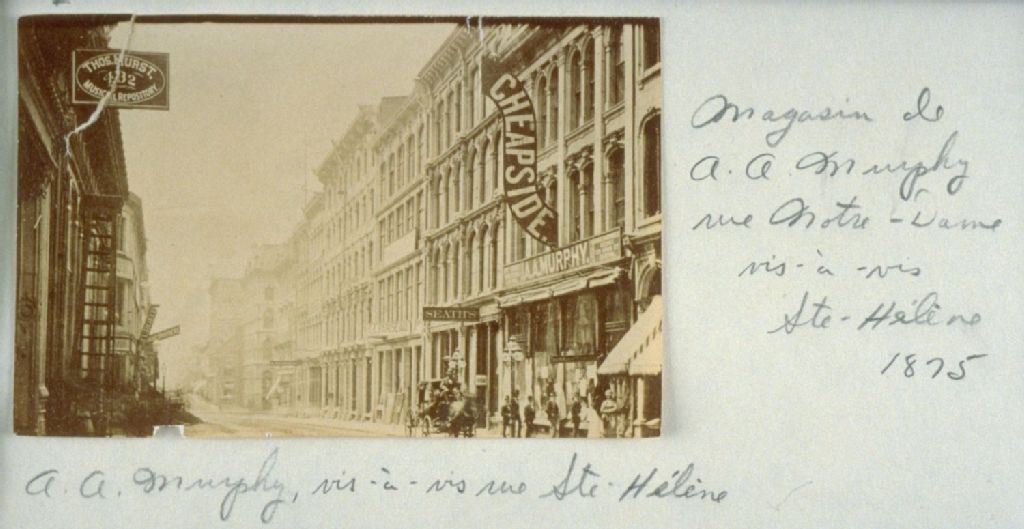 THOS. HURST.
432
MUSICAL REPOSITORY
CHEAPSIDE
A.A. MURPHY
SEATH'S
Magasin de
A. A. Murphy
rue Notre-Dame
vis-à-vis
Ste-Hélène
1875
A. A. Murphy, vis-à-vis rue Ste-Hélène